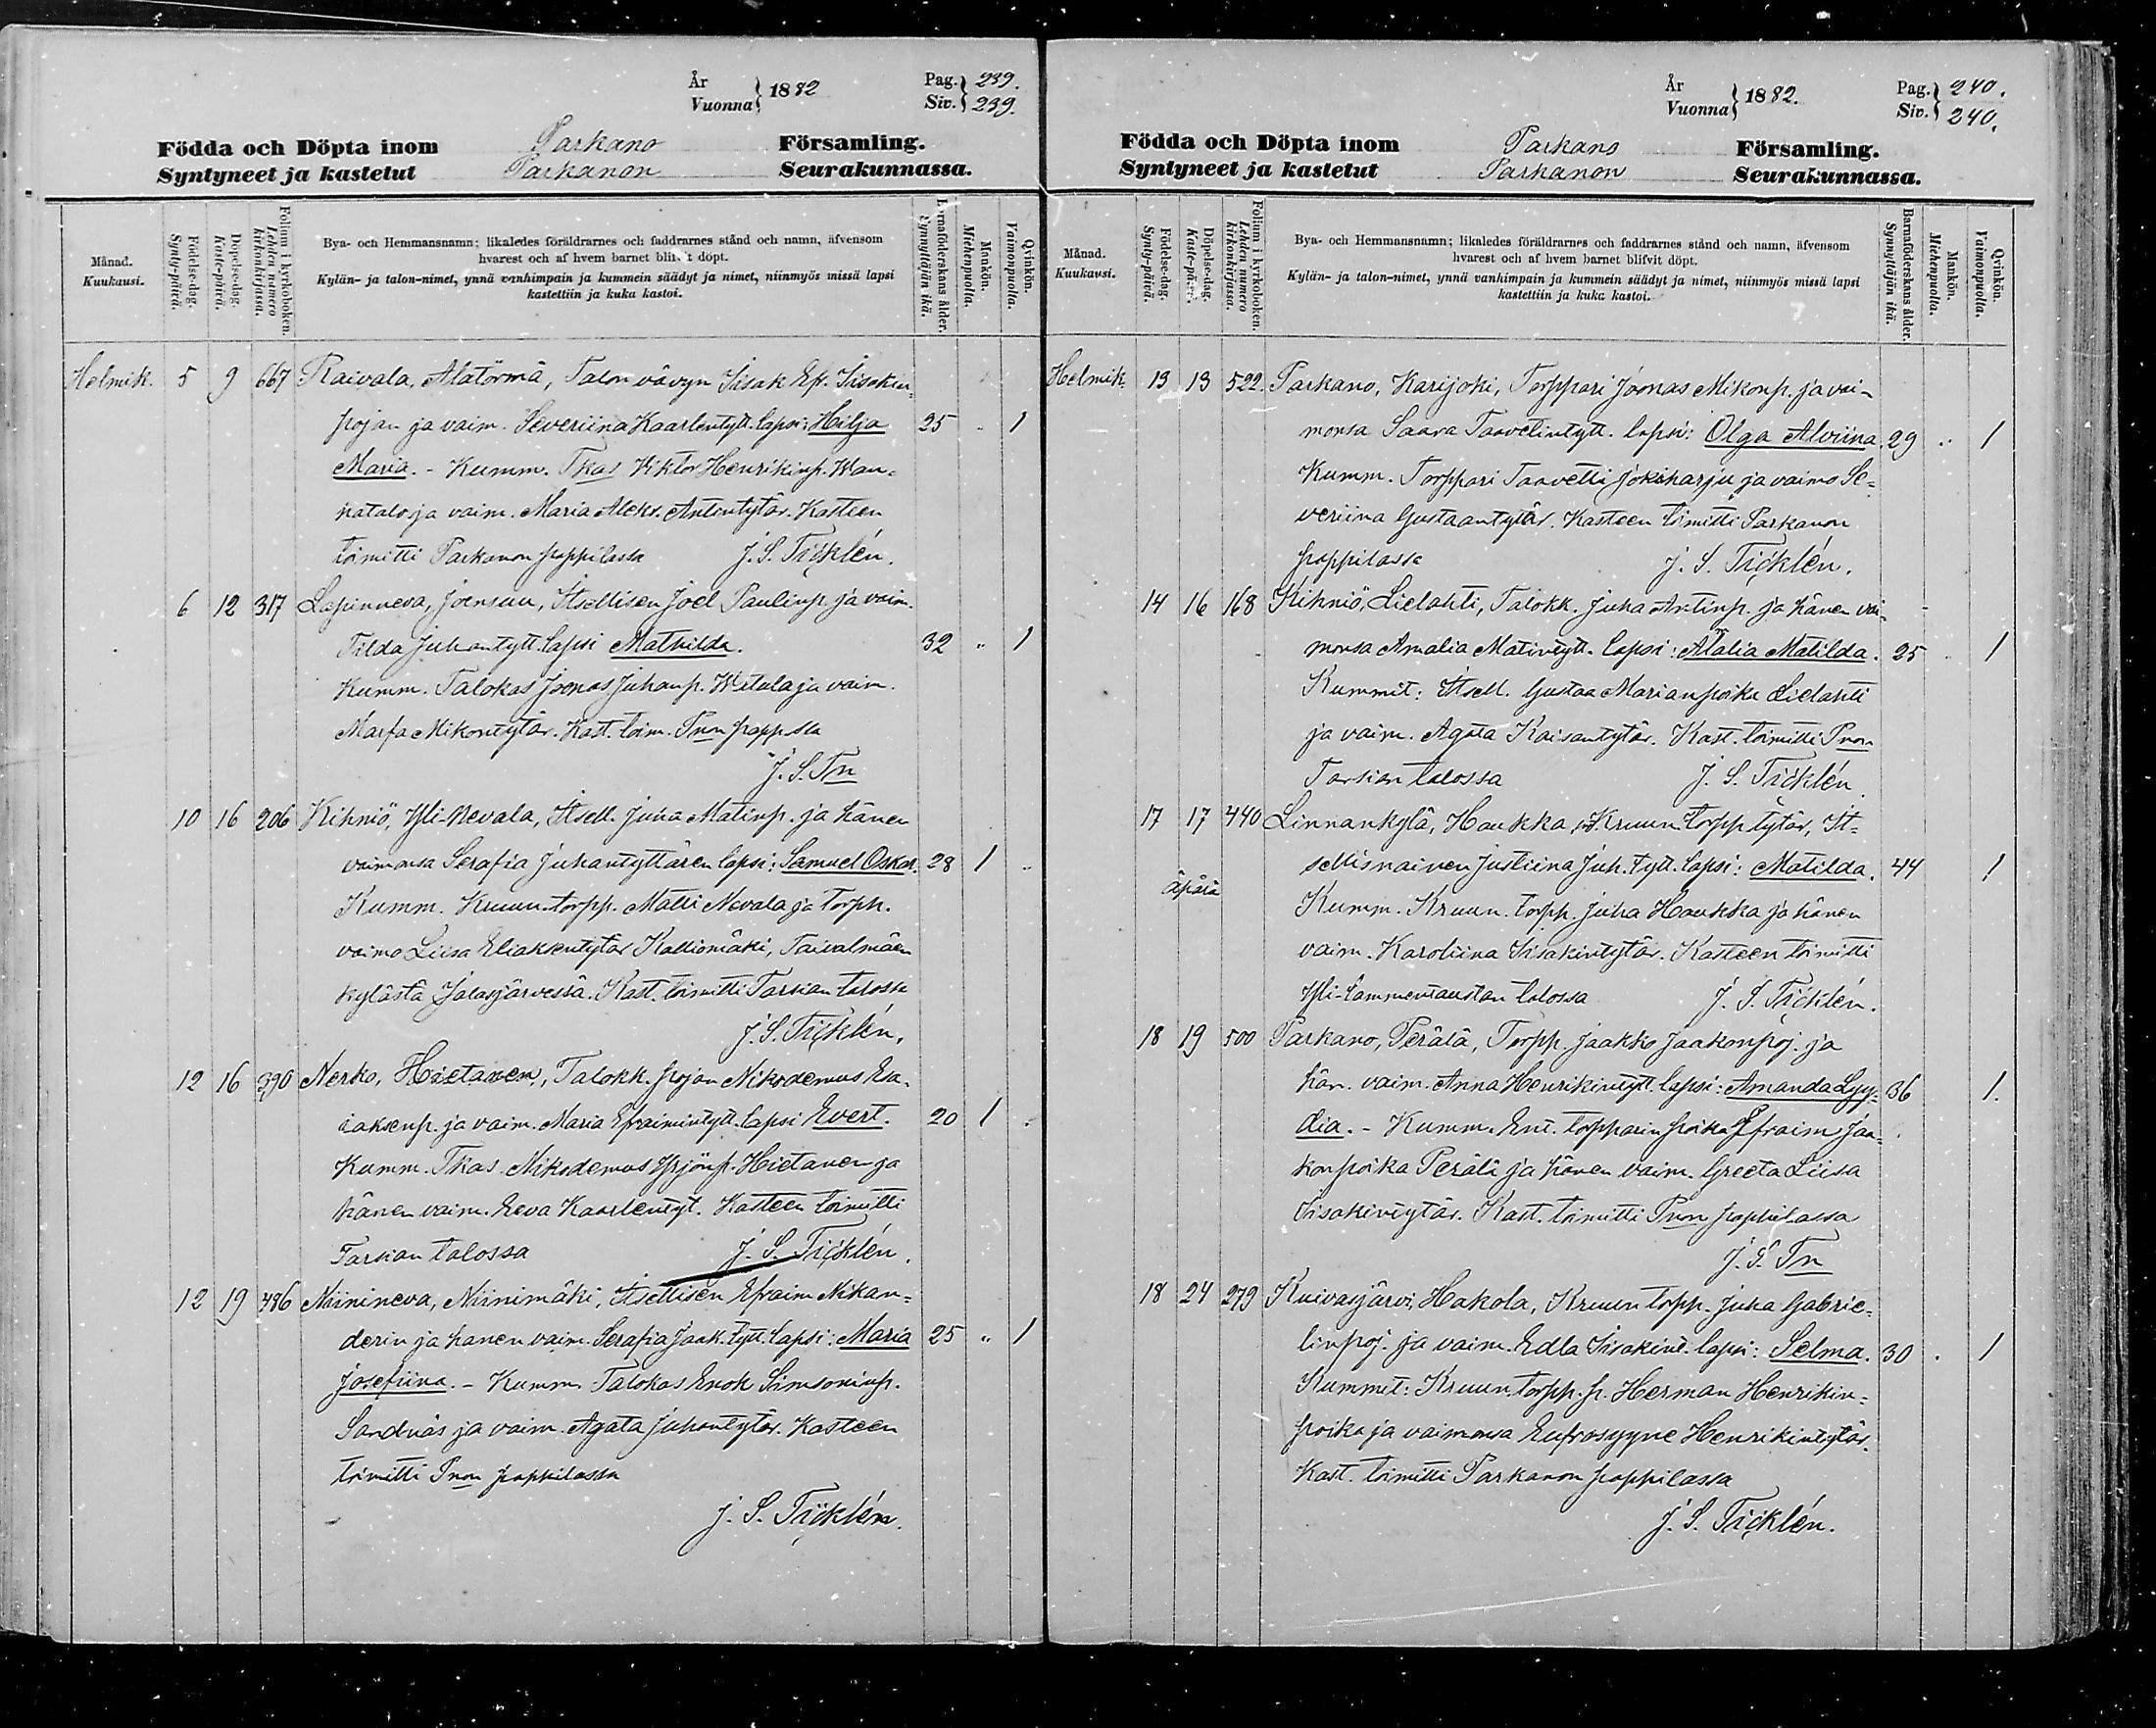 År
Vuonna } 1882
Pag. } 239.
Siv. } 239.
Födda och Döpta inom Parkano Församling.
Syntyneet ja kastetut Parkanon Seurakunnassa.
Månad.
Kuukausi.
Födelse-dag.
Synty-päivä.
Döpelse-dag.
Kaste-päivä.
Folium i kyrkoboken.
Lehden numero kirkonkirjassa.
Bya- och Hemmansnamn; likaledes föräldrarnes och faddrarnes stånd och namn, äfvensom
hvarest och af hvem barnet blifvit döpt.
Kylän- ja talon-nimet, ynnä vanhimpain ja kummein säädyt ja nimet, niinmyös missä lapsi
kastettiin ja kuka kastoi.
Barnaföderskans ålder.
Synnyttäjän ikä.
Mankön.
Miehenpuolta.
Qvinkön.
Vaimonpuolta.
Helmik. 5 9 667 Raivala, Alatörmä, Talon vävyn Iisak Ef. Iisakin-
pojan ja vaim. Severiina Kaarlentytt. lapsi: Hilja 25 " 1
Maria. - Kumm. Tkas Viktor Henrikinp. Wan-
hatalo ja vaim. Maria Aleks. Antintytär. Kasteen
toimitti Parkanon pappilassa J. S. Ticklén.
6 12 317 Lapinneva, Joensuu, Itsellisen Joel Paulinp. ja vaim.
Tilda Juhantytt. lapsi Mathilda. 32 " 1
Kumm. Talokas Joonas Juhanp. Witala ja vaim.
Marfa Mikontytär. Kast. toim. Pnon papp.ssa
J. S. Tn
10 16 206 Kihniö, Yli-Nevala, Itsell. Juha Matinp. ja hänen
vaimonsa Serafia Juhantyttären lapsi: Samuel Oskar. 28 1 "
Kumm. Kruun. torpp. Matti Nevala ja torpp.
vaimo Liisa Eliaksentytär Kalliomäki, Taivalmäen
kylästä Jalasjärvessä. Kast. toimitti Tarsian talossa
J. S. Ticklén.
12 16 390 Nerko, Hietanen, Talokk. pojan Nikodemus Esa-
iaksenp. ja vaim. Maria Efraimintytt. lapsi Evert. 20 1
Kumm. Tkas. Nikodemus Yrjönp. Hietanen ja
hänen vaim. Eeva Kaarlentyt. Kasteen toimitti
Tarsian talossa J. S. Ticklén.
12 19 486 Niinineva, Niinimäki, Itsellisen Efraim Nikan-
derin ja hänen vaim. Serafia Jaak. tytt. lapsi: Maria 25 " 1
Josefiina. - Kumm. Talokas Enok Simsoninp.
Sandnäs ja vaim. Agata Juhantytär. Kasteen
toimitti Pnon pappilassa
J. S. Ticklén.
År
Vuonna } 1882.
Pag. } 240.
Siv. } 240.
Födda och Döpta inom Parkano Församling.
Syntyneet ja kastetut Parkanon Seurakunnassa.
Månad.
Kuukausi.
Födelse-dag.
Synty-päivä.
Döpelse-dag.
Kaste-päivä.
Folium i kyrkoboken.
Lehden numero kirkonkirjassa.
Bya- och Hemmansnamn; likaledes föräldrarnes och faddrarnes stånd och namn, äfvensom
hvarest och af hvem barnet blifvit döpt.
Kylän- ja talon-nimet, ynnä vanhimpain ja kummein säädyt ja nimet, niinmyös missä lapsi
kastettiin ja kuka kastoi.
Barnaföderskans ålder.
Synnyttäjän ikä.
Mankön.
Miehenpuolta.
Qvinkön.
Vaimonpuolta.
Helmik. 13 13 522. Parkano, Karijoki, Torppari Joonas Mikonp. ja vai-
monsa Saara Taavetintytt. lapsi: Olga Alviina. 29 " 1
Kumm. Torppari Taavetti Jokiharju ja vaimo Se-
veriina Gustaantytär. Kasteen toimitti Parkanon
pappilassa J. S. Ticklén.
14 16 168 Kihniö, Lielahti, Talokk. Juha Antinp. ja hänen vai-
monsa Amalia Matintytt. lapsi: Atalia Matilda. 25 1
Kummit: Itsell. Gustaa Marianpoika Lielahti
ja vaim. Agata Kaisantytär. Kast. toimitti Pnon
Tarsian talossa J. S. Ticklén.
17 17 440 Linnankylä, Haukka, Kruun. torpp. tytär, It-
sellisnainen Justiina Juh. tytt. lapsi: Matilda. 44 1
äpärä
Kumm. Kruun. torpp. Juha Haukka ja hänen
vaim. Karoliina Iisakintytär. Kasteen toimitti
Yli-Lammentaustan talossa J. S. Ticklén.
18 19 500 Parkano, Perälä, Torpp. Jaakko Jaakonpoj. ja
hän. vaim. Anna Henrikintytt. lapsi: Amanda Lyy- 36 1.
dia. - Kumm. Ent. torpparin poika Efraim Jaa-
konpoika Perälä ja hänen vaim. Greeta Liisa
Iisakintytär. Kast. toimitti Pnon pappilassa
J. S. Tn
18 24 279 Kuivasjärvi, Hakola, Kruun torpp. Juha Gabrie-
linpoj. ja vaim. Edla Iisakint. lapsi: Selma. 30 1
Kummit: Kruun. torpp. p. Herman Henrikin-
poika ja vaimonsa Eufrosyyne Henrikintytär.
Kast. toimitti Parkanon pappilassa
J. S. Ticklén.